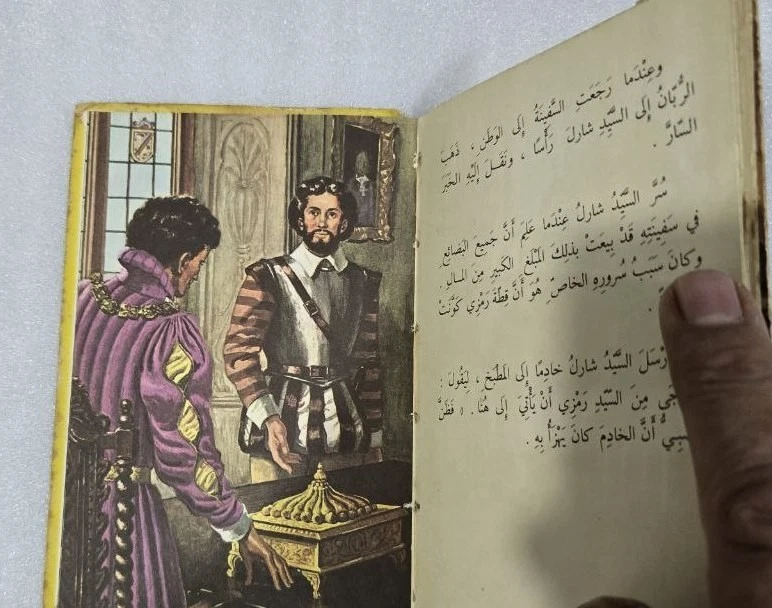 وعِنْدَما رَجَعَتِ السَّفِينَةُ إِلى الوَطَنِ ، ذَهَبَ
الرُّبَّانُ إِلى السَّيِّدِ شارل رَأْسًا ، ونَقَـلَ إِلَيْهِ الخَبَرَ
السّارَّ .
سُرَّ السَّيِّدُ شارلُ عِنْدَما عَلِمَ أَنَّ جَمِيعَ البَضائِعِ
في سَفِينَتِهِ قَدْ بِيعَتْ بِذلِكَ المَبْلَغِ الكَبِيرِ مِنَ المـالِ .
وكانَ سَبَبُ سُرورِهِ الخاصّ هُوَ أَنَّ قِطَّةَ رَمْزِي كَوَّنَتْ
السَّيِّدُ شارلُ خادِمًا إِلى المَطْبَخِ ، لِيَقُولَ :
مِنَ السَّيِّدِ رَمْزِي أَنْ يَأْتِيَ إِلى هُنا . » فَظَنَّ
أَنَّ الخادِمَ كانَ يَهْزَأُ بِهِ .